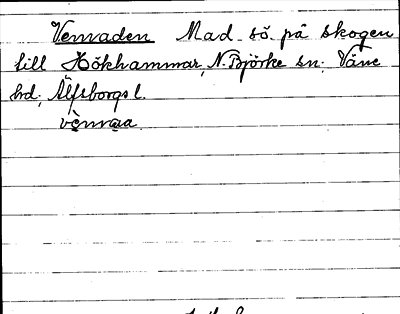 Vennaden Mad sö. på skogen
till Hökhammar, N. Björke sn; Väne
hd; Älfsborgs l.
vènnąa